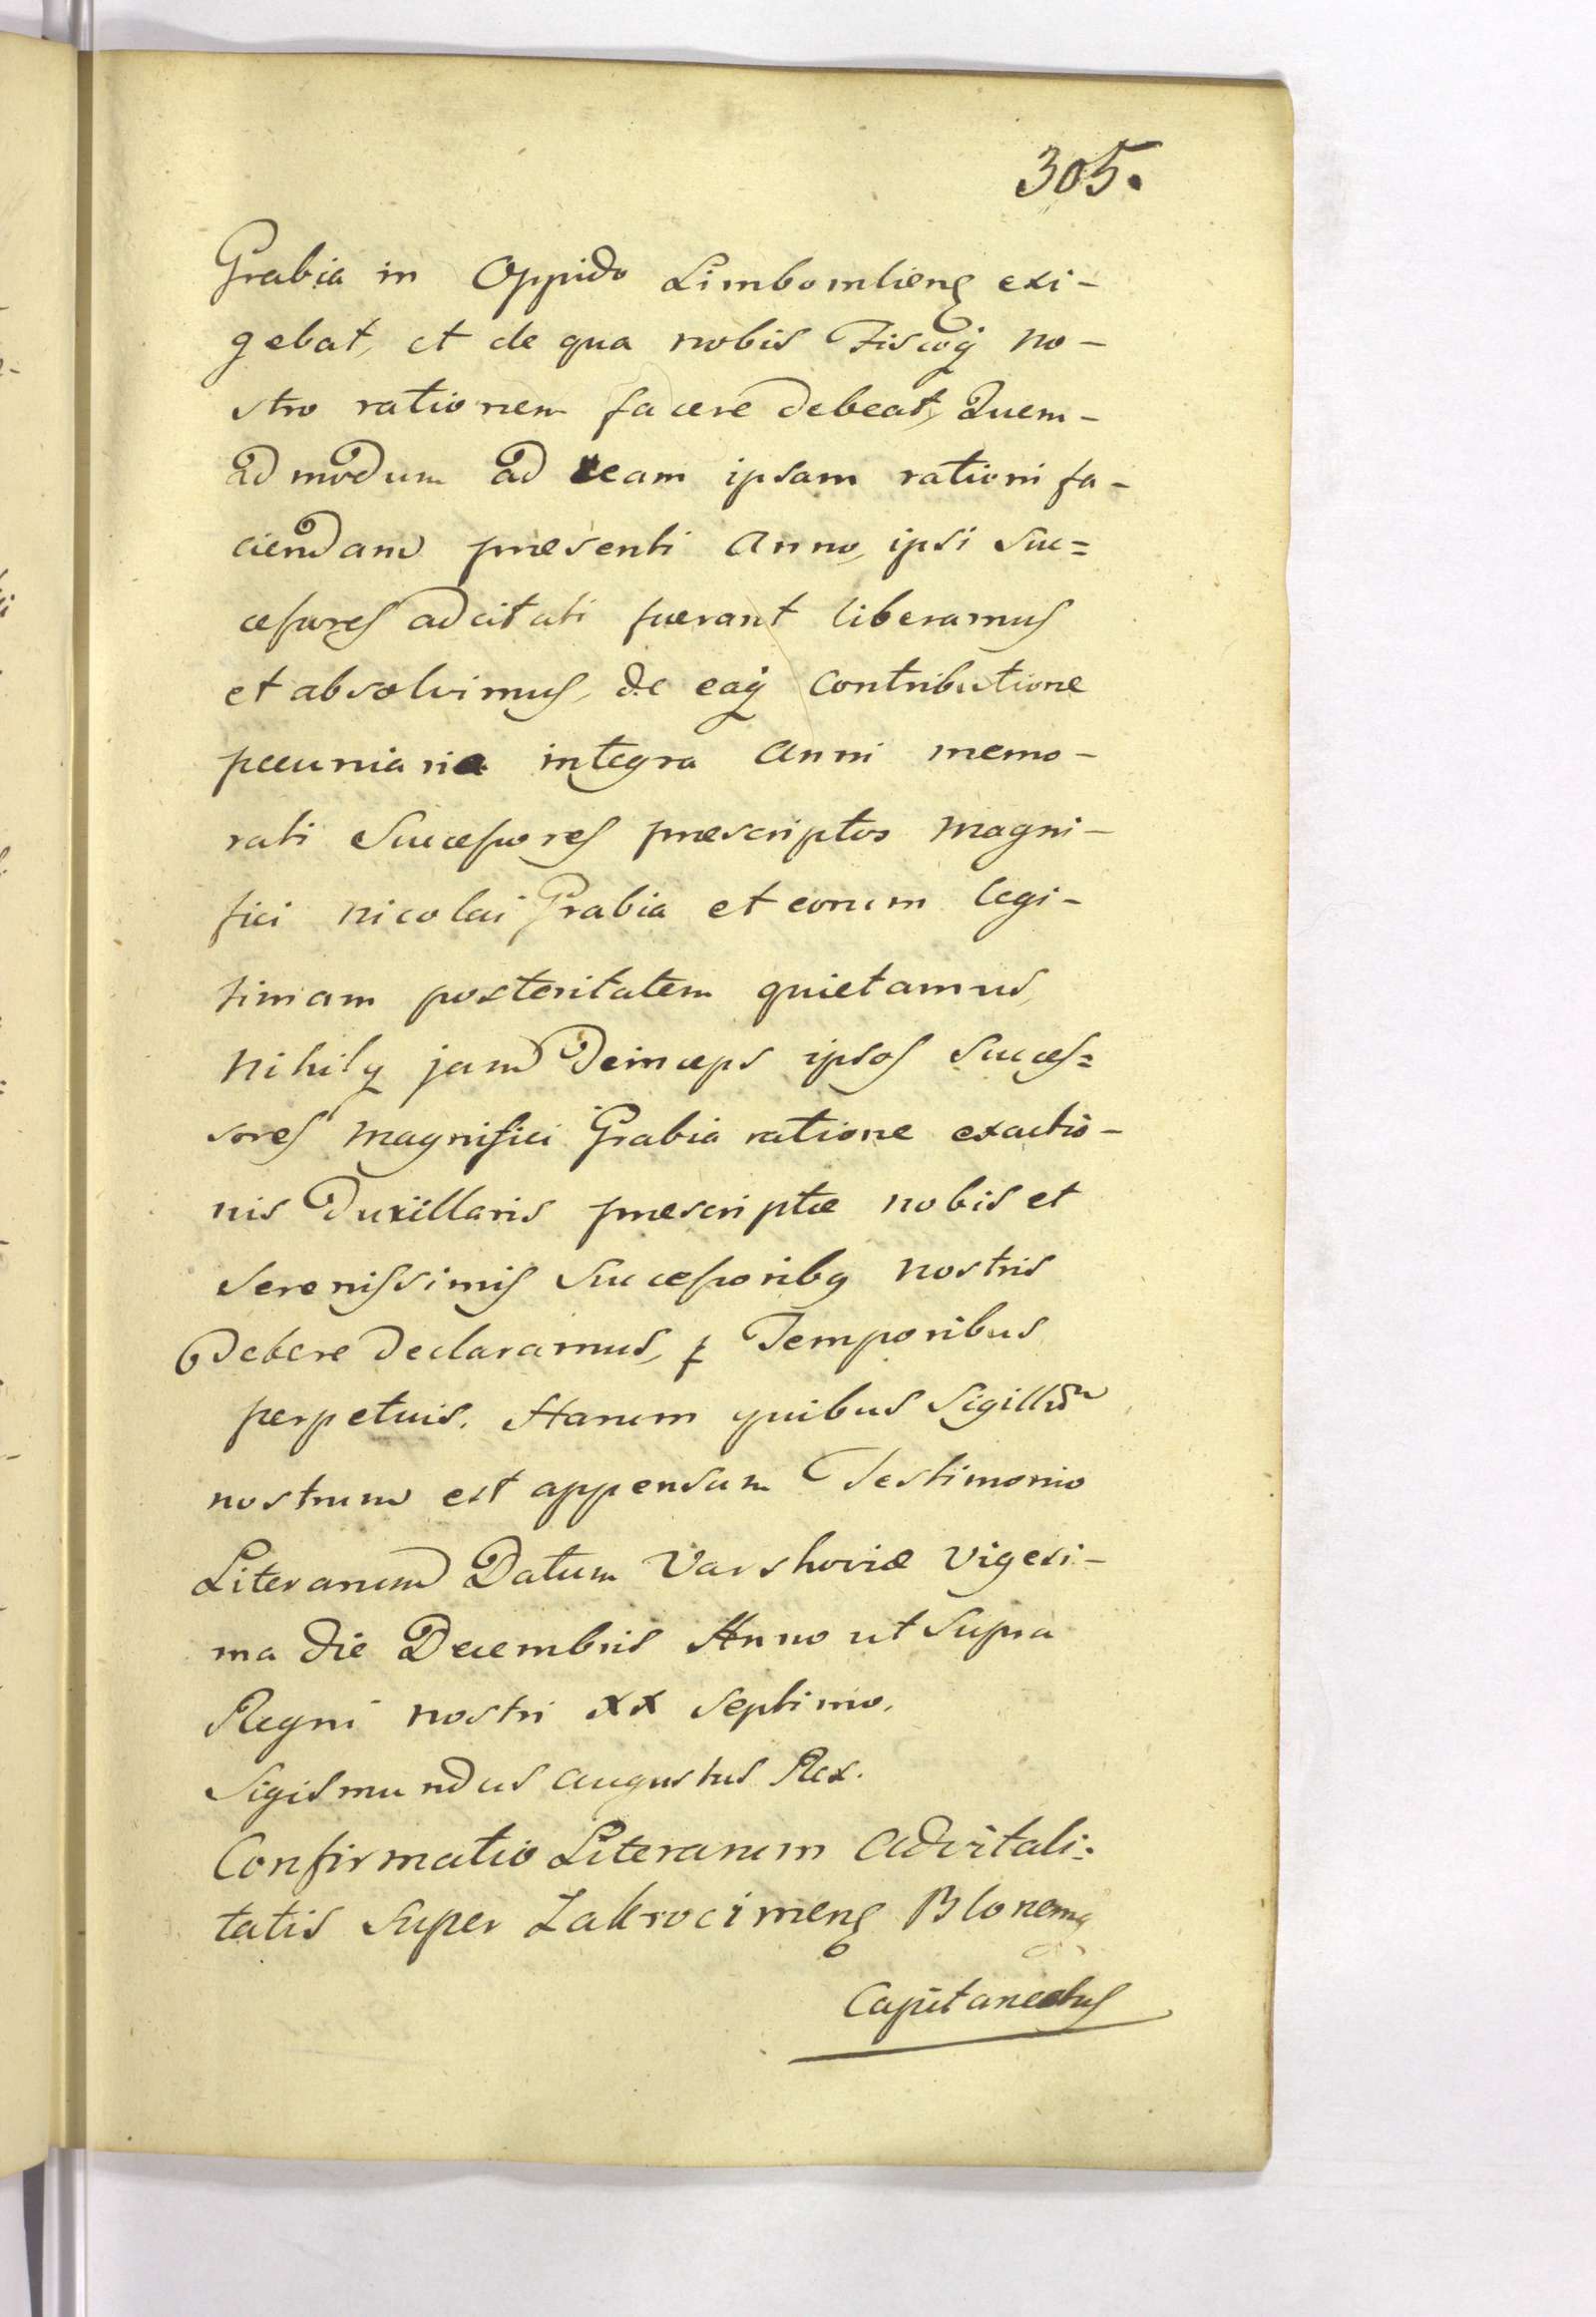 305.
Grabia in Oppido Limbomliens exi-
gebat, et de qua nobis Fiscoq no-
stro rationem facere debeat, Quem-
ad modum ad eam ipsam rationi fa-
ciendam præsenti Anno, ipsi Suc=
cessores adcitati fuerant liberamus
et absolvimus, de eaq contributione
pecuniaria integra Anni memo-
rati Successores præscriptos Magni-
fici Nicolai Grabia et eorum legi-
timam posteritatem quietamus,
Nihilq jam deinceps ipsos Succes=
sores Magnifici Grabia ratione exactio-
nis Duxillaris præscriptæ nobis et
Serenissimis Successoribq nostris
Debere declaramus, p Temporibus
perpetuis. Harum quibus Sigillum
nostrum est appensum Testimonio
Literarum Datum Varshoviæ Vigesi-
ma die Decembris Anno ut Supra
Regni nostri XX Septimo.
Sigismundus Augustus Rex.
Confirmatio Literarum Advitali=
tatis Super Zakrocimens Blonens
Capitaneatus